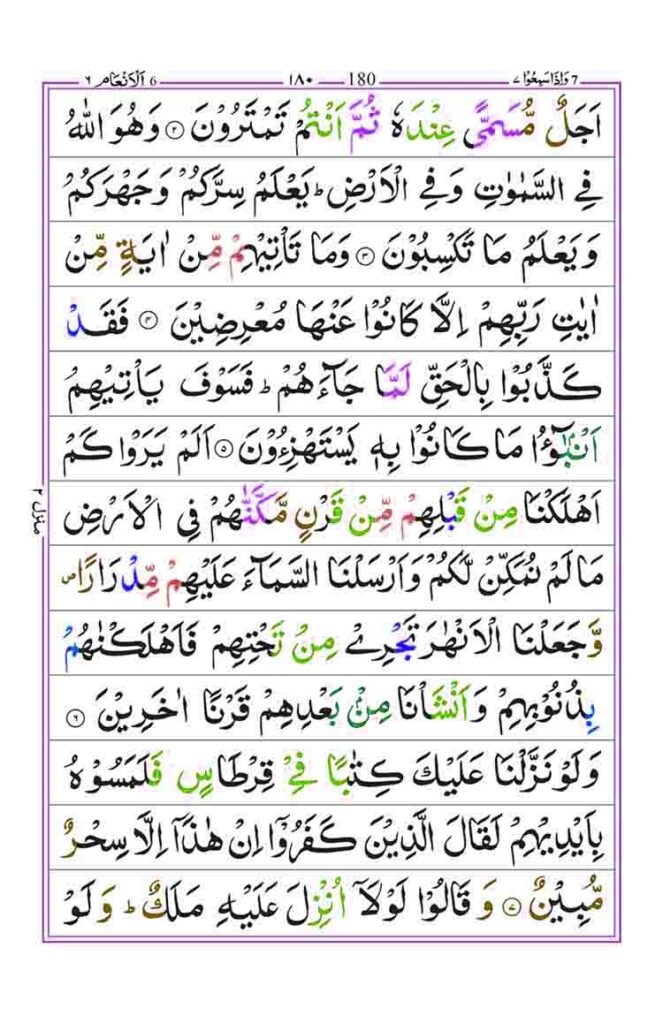 7 وَاِذَاسَمِعُوْا ٧ 180 ١٨٠ 6 اَلْاَنْعَام ٦
اَجَلٌ مُّسَمًّى عِنْدَهٗ ثُمَّ اَنْتُمْ تَمْتَرُوْنَ ۝٢ وَهُوَ اللّٰهُ
فِى السَّمٰوٰتِ وَفِى الْاَرْضِ ؕ يَعْلَمُ سِرَّكُمْ وَجَهْرَكُمْ
وَيَعْلَمُ مَا تَكْسِبُوْنَ ۝٣ وَمَا تَاْتِيْهِمْ مِّنْ اٰيَةٍ مِّنْ
اٰيٰتِ رَبِّهِمْ اِلَّا كَانُوْا عَنْهَا مُعْرِضِيْنَ ۝٤ فَقَدْ
كَذَّبُوْا بِالْحَقِّ لَمَّا جَآءَهُمْ ؕ فَسَوْفَ يَاْتِيْهِمْ
اَنْۢبٰٓؤُا مَا كَانُوْا بِهٖ يَسْتَهْزِءُوْنَ ۝٥ اَلَمْ يَرَوْا كَمْ
اَهْلَكْنَا مِنْ قَبْلِهِمْ مِّنْ قَرْنٍ مَّكَّنّٰهُمْ فِى الْاَرْضِ
مَا لَمْ نُمَكِّنْ لَّكُمْ وَاَرْسَلْنَا السَّمَآءَ عَلَيْهِمْ مِّدْرَارًا ص
وَّجَعَلْنَا الْاَنْهٰرَ تَجْرِىْ مِنْ تَحْتِهِمْ فَاَهْلَكْنٰهُمْ
بِذُنُوْبِهِمْ وَاَنْشَاْنَا مِنْۢ بَعْدِهِمْ قَرْنًا اٰخَرِيْنَ ۝٦
وَلَوْ نَزَّلْنَا عَلَيْكَ كِتٰبًا فِىْ قِرْطَاسٍ فَلَمَسُوْهُ
بِاَيْدِيْهِمْ لَقَالَ الَّذِيْنَ كَفَرُوْٓا اِنْ هٰذَآ اِلَّا سِحْرٌ
مُّبِيْنٌ ۝٧ وَقَالُوْا لَوْلَآ اُنْزِلَ عَلَيْهِ مَلَكٌ ؕ وَلَوْ
منزل ٢